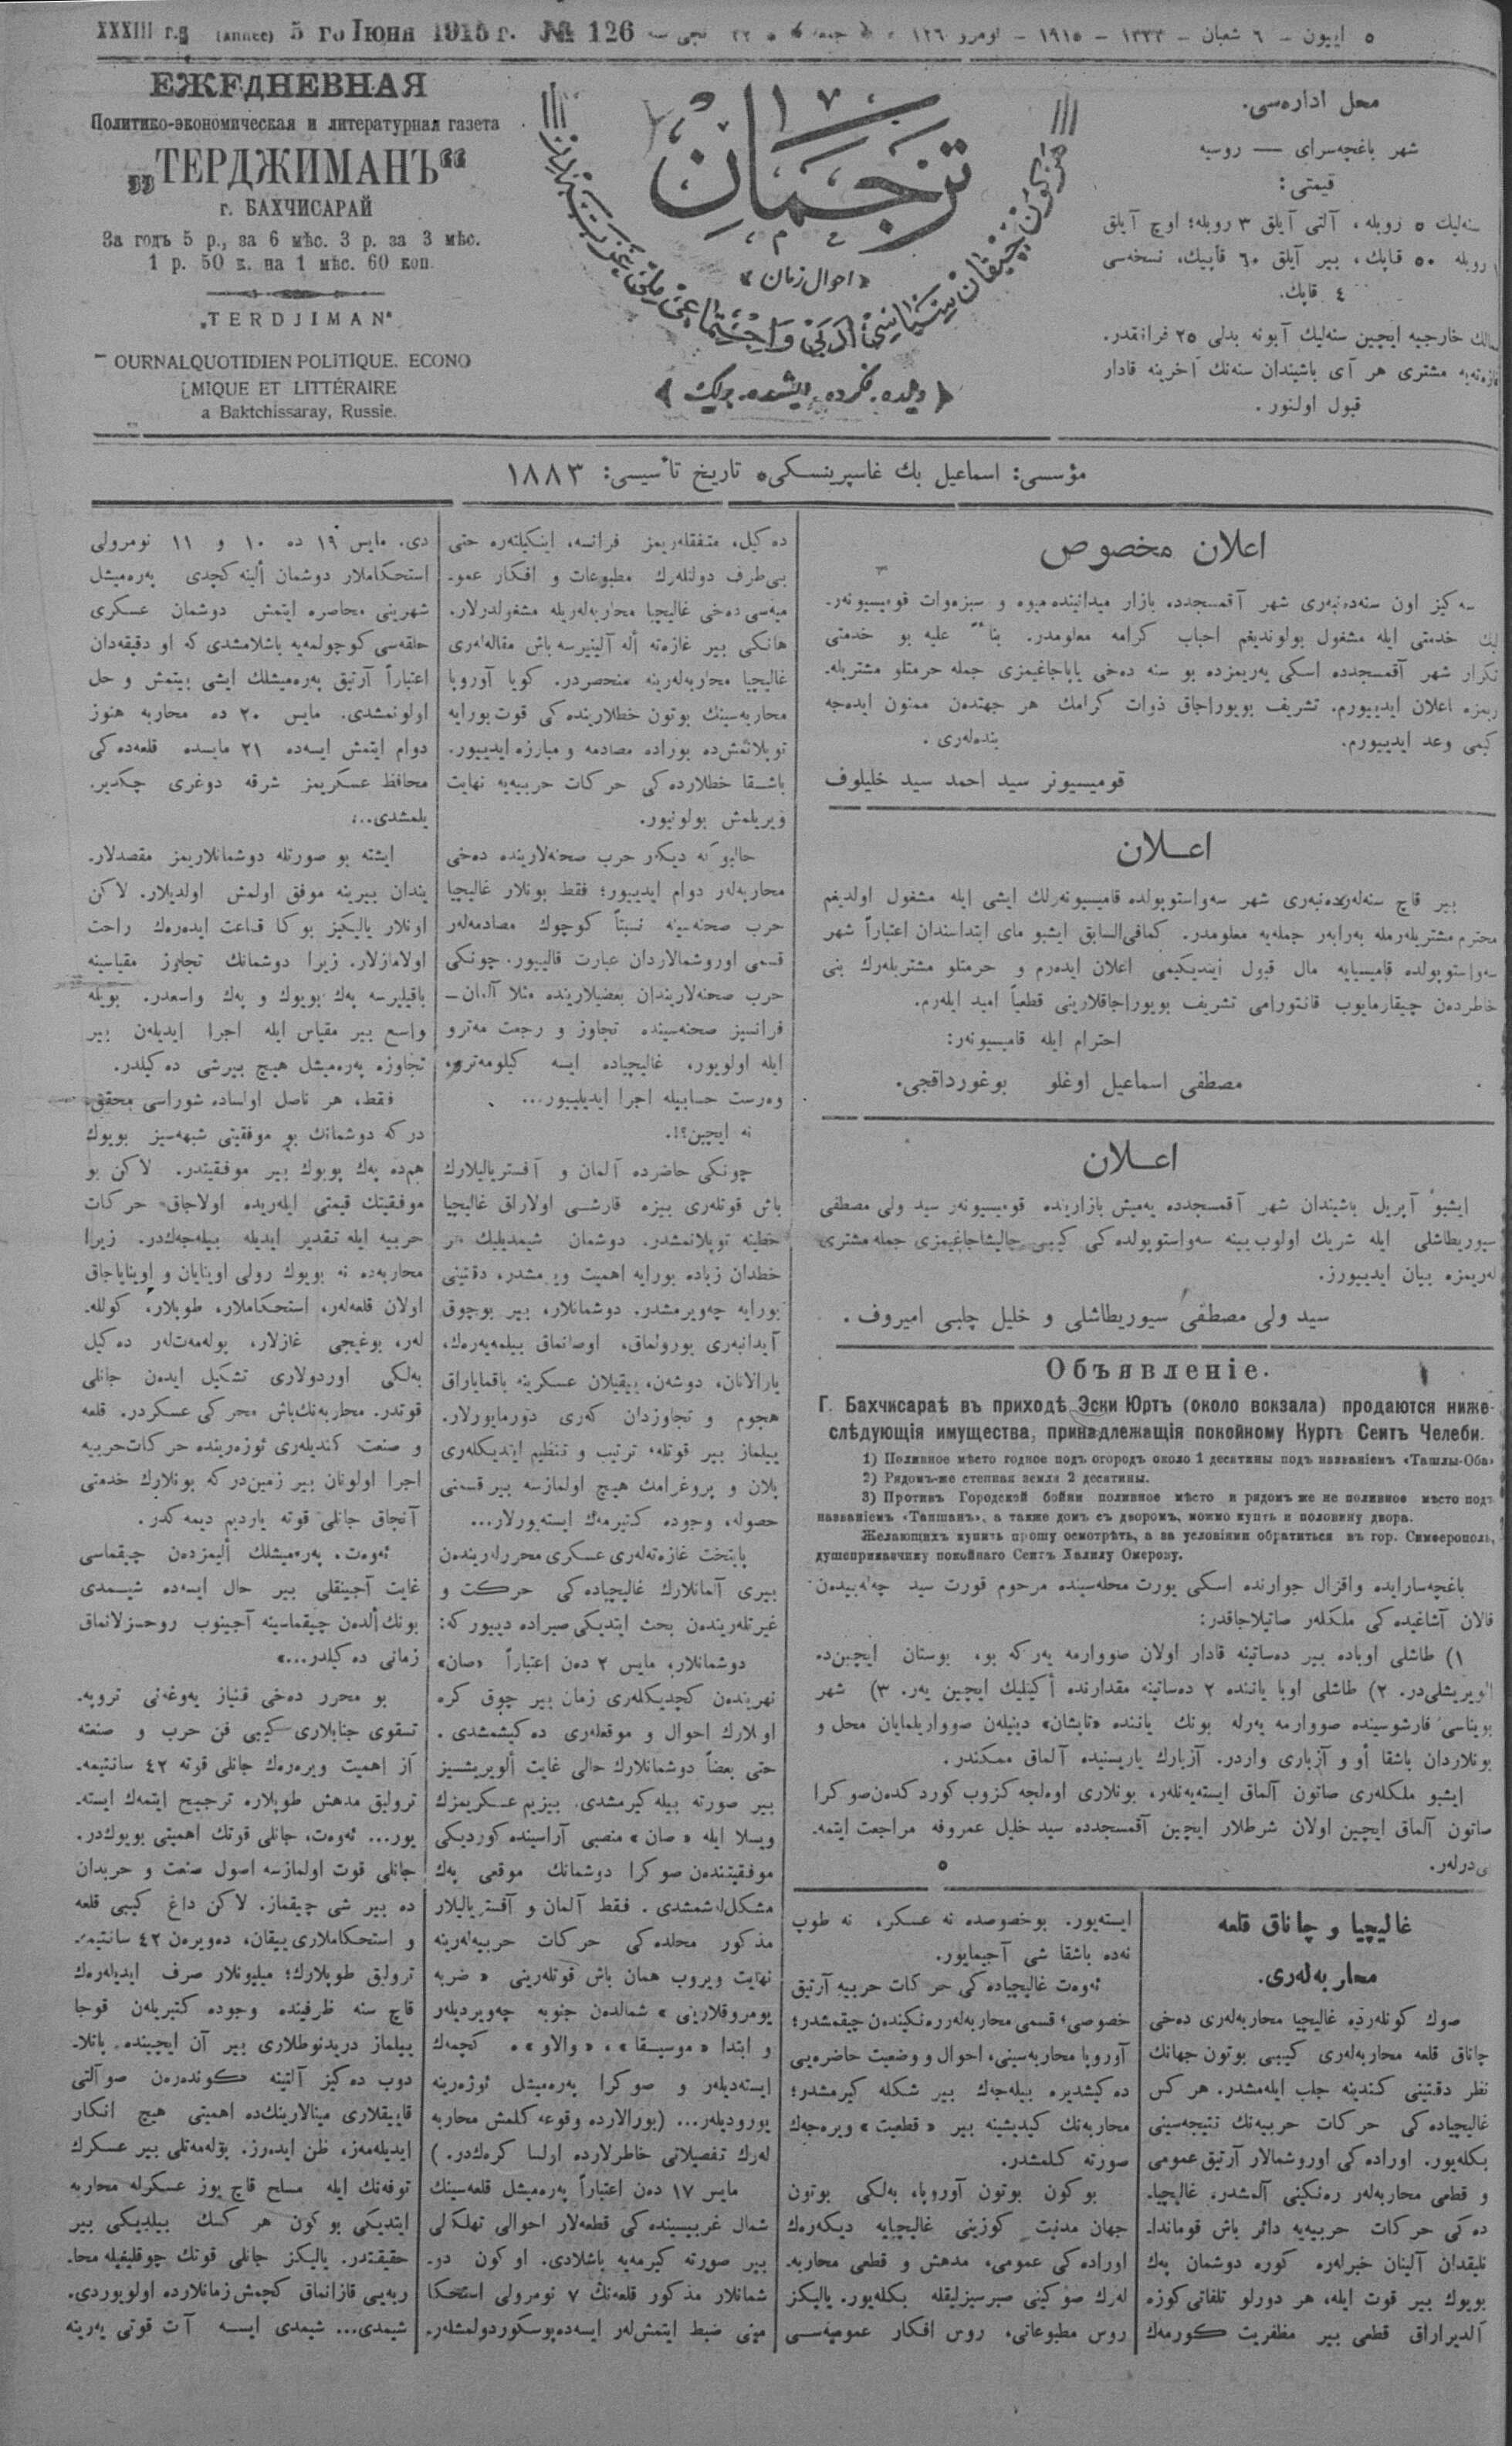 XXXIII г. (Annee) 5 го Іюня 1915 г. № 126
٥ ایيون – ٦ شعبان – ١٣٣٣ – ١٩١٥ – نومرو ١٢٦
ЕЖЕДНЕВНАЯ
Политико-экономическая и литературная газета
„ТЕРДЖИМАНЪ“
г. БАХЧИСАРАЙ
За годъ 5 р., за 6 мѣс. 3 р. за 3 мѣс.
1 р. 50 к. на 1 мѣс. 60 коп.
„TERDJIMAN“
OURNALQUOTIDIEN POLITIQUE. ECONO
MIQUE ET LITTÉRAIRE
a Baktchissaray, Russie.
ترجمان
«احوال زمان»
دیلده، فکرده، ایشده، برلک
محل اداره‌سی.
شهر باغچه‌سرای — روسیه
قیمتی:
سنه‌لیك ٥ روبله، آلتی آیلق ٣ روبله؛ اوچ آیلق
روبله ٥٠ قاپك، بیر آیلق ٦٠ قاپیك، نسخه‌سی
٤ قاپك.
خارجیه ایچین سنه‌لیك آبونه بدلی ٢٥ فرانقدر.
مشتری هر آی باشیندان سنه‌نك آخرینه قادار
قبول اولنور.
مؤسسی: اسماعیل بك غاسپرینسکی، تاریخ تأسیسی: ١٨٨٣
اعلان مخصوص
سه‌کیز اون سنه‌دنبه‌ری شهر آقمسجدده بازار میدانینده میوه و سبزه‌وات قومیسیونه‌ر-
لیك خدمتی ایله مشغول بولوندیغم احباب کرامه معلومدر. بناءً علیه بو خدمتی
تکرار شهر آقمسجدده اسکی یه‌ریمزده بو سنه ده‌خی یاپاجاغیمزی جمله حرمتلو مشتریله-
ریمزه اعلان ایدییورم. تشریف بویوراجاق ذوات کرامك هر جهتدن ممنون ایده‌جه
کیمی وعد ایدییورم. بنده‌له‌ری.
قومیسیونر سید احمد سید خلیلوف
اعـلان
بیر قاچ سنه‌له‌رده‌نبه‌ری شهر سه‌واستوپولده قامیسیونه‌رلك ایشی ایله مشغول اولدیغم
محترم مشتریله‌رمله به‌رابه‌ر جمله‌یه معلومدر. کمافی‌السابق ایشبو مای ابتداسندان اعتباراً شهر
سه‌واستوپولده قامیسیایه مال قبول ایتدیکیمی اعلان ایده‌رم و حرمتلو مشتریله‌رك بنی
خاطردن چیقارمایوب قانتورامی تشریف بویوراجاقلارینی قطعیاً امید ایله‌رم.
احترام ایله قامیسیونه‌ر:
مصطفی اسماعیل اوغلو بوغورداقجی.
اعـلان
ایشبو آپریل باشیندان شهر آقمسجدده یه‌میش بازارینده قومیسیونه‌ر سید ولی مصطفی
سیوریطاشلی ایله شریك اولوب ینه سه‌واستوپولده کی کیبی چالیشاجاغیمزی جمله مشتری
له‌ریمزه بیان ایدییورز.
سید ولی مصطفی سیوریطاشلی و خلیل چلبی امیروف.
Объявленіе.
Г. Бахчисараѣ въ приходѣ Эски Юртъ (около вокзала) продаются ниже-
слѣдующія имущества, принадлежащія покойному Куртъ Сеитъ Челеби.
1) Поливное мѣсто годное подъ огородъ около 1 десятины подъ названіемъ «Ташлы-Оба»
2) Рядомъ-же степная земля 2 десятины.
3) Противъ Городской бойни поливное мѣсто и рядомъ же не поливное мѣсто подъ
названіемъ «Тапшанъ», а также домъ съ дворомъ, можно купить и половину двора.
Желающихъ купить прошу осмотрѣть, а за условіями обратиться въ гор. Симферополь,
душеприказчику покойнаго Сеитъ Халилу Омерову.
باغچه‌سارایده واقزال جوارنده اسکی یورت محله‌سینده مرحوم قورت سید چه‌له‌بیدن
قالان آشاغیده کی ملکله‌ر صاتیلاجاقدر:
١) طاشلی اوباده بیر ده‌ساتینه قادار اولان صووارمه یه‌ر که بو، بوستان ایچین‌ده
الویریشلی‌در. ٢) طاشلی اوبا یاننده ٢ ده‌ساتینه مقدارنده أکینلیك ایچین یه‌ر. ٣) شهر
بویناسی قارشوسینده صووارمه یه‌رله بونك یاننده «تاپشان» دینیله‌ن صوواریلمایان محل و
بونلاردان باشقا أو و آزباری واردر. آزبارك یاریسنیده آلماق ممکندر.
ایشبو ملکله‌ری صاتون آلماق ایسته‌یه‌نله‌ر، بونلاری اوه‌لجه کزوب کوردکده‌ن صوکرا
صاتون آلماق ایچین اولان شرطلار ایچین آقمسجدده سید خلیل عمروفه مراجعت ایتمه-
لی‌درله‌ر.
غالیچیا و چاناق قلعه
محاربه‌له‌ری.
صوك کونله‌رده غالیچیا محاربه‌له‌ری ده‌خی
چاناق قلعه محاربه‌له‌ری کیبی بوتون جهانك
نظر دقتینی کندینه جلب ایله‌مشدر. هر کس
غالیچیاده کی حرکات حربیه‌نك نتیجه‌سینی
بکله‌یور. اوراده کی اوروشمالار آرتیق عمومی
و قطعی محاربه‌له‌ر ره‌نکینی آلمشدر. غالیچیا-
ده کی حرکات حربیه‌یه دائر باش قوماندا-
نلیقدان آلینان خبرله‌ره کوره دوشمان پك
بویوك بیر قوت ایله، هر دورلو تلفاتی کوزه
آلدیراراق قطعی بیر مظفریت کورمه‌ك
ایسته‌یور. بوخصوصده نه عسکر، نه طوپ
نه‌ده باشقا شی آجیمایور.
ئه‌وه‌ت غالیچیاده کی حرکات حربیه آرتیق
خصوصی، قسمی محاربه‌له‌ر ره‌نکیندن چیقمشدر؛
آوروپا محاربه‌سینی، احوال و وضعیت حاضره‌یی
ده‌کیشدیره بیله‌جه‌ك بیر شکله کیرمشدر؛
محاربه‌نك کیدیشینه بیر «قطعیت» ویره‌جه‌ك
صورته کلمشدر.
بو کون بوتون آوروپا، به‌لکی بوتون
جهان مدنیت کوزینی غالیچیایه دیکه‌ره‌ك
اوراده کی عمومی، مدهش و قطعی محاربه-
له‌رك صوکینی صبرسیزلیقله بکله‌یور. یالیکز
روس مطبوعاتی، روس افکار عمومیه‌سی
ده‌کیل، متفقله‌ریمز فرانسه، اینکیلته‌ره حتی
بی‌طرف دولتله‌رك مطبوعات و افکار عمو-
میه‌سی ده‌خی غالیچیا محاربه‌له‌ریله مشغولدرلار.
هانکی بیر غازه‌ته أله آلینیرسه باش مقاله‌له‌ری
غالیچیا محاربه‌له‌رینه منحصردر. کویا آوروپا
محاربه‌سینك بوتون خطلارینده کی قوت بورایه
توپلانمش‌ده بوراده مصادمه و مبارزه ایدییور.
باشقا خطلارده کی حرکات حربییه‌یه نهایت
ویریلمش بولونیور.
حالبوکه دیکه‌ر حرب صحنه‌لارینده ده‌خی
محاربه‌له‌ر دوام ایدییور؛ فقط بونلار غالیچیا
حرب صحنه‌سینه نسبتاً کوچوك مصادمه‌له‌ر
قسمی اوروشمالاردان عبارت قالییور. چونکی
حرب صحنه‌لاریندان بعضیلارینده مثلا آلمان-
فرانسیز صحنه‌سینده تجاوز و رجعت مه‌ترو
ایله اولویور، غالیچیاده ایسه کیلومه‌ترو،
وه‌رست حسابیله اجرا ایدیلییور...
نه ایچین؟!.
چونکی حاضرده آلمان و آفستریالیلارك
باش قوتله‌ری بیزه قارشی اولاراق غالیچیا
خطینه توپلانمشدر. دوشمان شیمدیلیك هر
خطدان زیاده بورایه اهمیت ویرمشدر، دقتینی
بورایه چه‌ویرمشدر. دوشمانلار، بیر بوچوق
آیدانبه‌ری یورولماق، اوصانماق بیلمه‌یه‌ره‌ك،
یارالانان، دوشه‌ن، ییقیلان عسکرینه باقمایاراق
هجوم و تجاوزدان که‌ری دورمایورلار.
ییلماز بیر قوتله، ترتیب و تنظیم ایتدیکله‌ری
پلان و پروغرامك هیچ اولمازسه بیر قسمنی
حصوله، وجوده کتیرمه‌ك ایسته‌یورلار...
پایتخت غازه‌ته‌له‌ری عسکری محررله‌ریندن
بیری آلمانلارك غالیچیاده کی حرکت و
غیرتله‌ریندن بحث ایتدیکی صیراده دییور که:
دوشمانلار، مایس ٢ ده‌ن اعتباراً «صان»
نهریندن کچدیکله‌ری زمان بیر چوق کره
اولارك احوال و موقعله‌ری ده‌کیشمشدی.
حتی بعضاً دوشمانلارك حالی غایت ألویریشسیز
بیر صورته بیله کیرمشدی. بیزیم عسکریمزك
ویسلا ایله «صان» منصبی آراسینده کوردیکی
موفقیتندن صوکرا دوشمانك موقعی پك
مشکل‌له‌شمشدی. فقط آلمان و آفستریالیلار
مذکور محلده کی حرکات حربیه‌له‌رینه
نهایت ویروب همان باش قوتله‌رینی «ضربه
یومروقلارینی» شمالدن جنوبه چه‌ویردیله‌ر
و ابتدا «موسیسقا»، «والاو»، کچمه‌ك
ایسته‌دیله‌ر و صوکرا پره‌میشل ئوزه‌رینه
یورودیله‌ر... (بورالارده وقوعه کلمش محاربه
له‌رك تفصیلاتی خاطرلارده اولسا کره‌ك‌در.)
مایس ١٧ ده‌ن اعتباراً پره‌میشل قلعه‌سینك
شمال غربیسینده کی قطعه‌لار احوالی تهلکه‌لی
بیر صورته کیرمه‌یه باشلادی. او کون دو-
شمانلار مذکور قلعه‌نك ٧ نومرولی استحکا
مینی ضبط ایتمش‌له‌ر ایسه‌ده پوسکوردولمشله‌ر-
دی. مایس ١٩ ده ١٠ و ١١ نومرولی
استحکاملار دوشمان ألینه کچدی پره‌میشل
شهرینی محاصره ایتمش دوشمان عسکری
حلقه‌سی کوچولمه‌یه باشلامشدی که او دقیقه‌دان
اعتباراً آرتیق پره‌میشلك ایشی بیتمش و حل
اولونمشدی. مایس ٢٠ ده محاربه هنوز
دوام ایتمش ایسه‌ده ٢١ مایسده قلعه‌ده کی
محافظ عسکریمز شرقه دوغری چکدیر-
یلمشدی...
ایشته بو صورتله دوشمانلاریمز مقصدلار-
یندان بیرینه موفق اولمش اولدیلار. لاکن
اونلار یالیکیز بوکا قناعت ایده‌ره‌ك راحت
اولامازلار. زیرا دوشمانك تجاوز مقیاسینه
باقیلیرسه پك بویوك و پك واسعدر. بویله
واسع بیر مقیاس ایله اجرا ایدیله‌ن بیر
تجاوزه پره‌میشل هیچ بیرشی ده‌کیلدر.
فقط، هر ناصل اولساده شوراسی محقق-
در که دوشمانك بو موفقیتی شبهه‌سیز بویوك
هم‌ده پك بویوك بیر موفقیتدر. لاکن بو
موفقیتك قیمتی ایله‌ریده اولاجاق حرکات
حربیه ایله تقدیر ایدیله بیله‌جه‌ك‌در. زیرا
محاربه‌ده نه بویوك رولی اوینایان و اوینایاجاق
اولان قلعه‌له‌ر، استحکاملار، طوپلار، کولله-
له‌ر، بوغیجی غازلار، بوله‌مه‌ت‌له‌ر ده‌کیل
به‌لکی اوردولاری تشکیل ایده‌ن جانلی
قوتدر. محاربه‌نك‌باش محرکی عسکردر. قلعه
و صنعت کندیله‌ری ئوزه‌رینده حرکات‌حربیه
اجرا اولونان بیر زمین‌در که بونلارك خدمتی
آنجاق جانلی قوته یاردیم دیمه‌کدر.
ئه‌وه‌ت، پره‌میشلك ألیمزدن چیقماسی
غایت آجینقلی بیر حال ایسه‌ده شیمدی
بونك ألدن چیقماسینه آجینوب روحسزلانماق
زمانی ده‌کیلدر...»
بو محرر ده‌خی قنیاز یه‌وغه‌نی تروبه-
تسقوی جنابلاری کیبی فن حرب و صنعته
آز اهمیت ویره‌ره‌ك جانلی قوته ٤٢ سانتیمه-
ترولیق مدهش طوپلاره ترجیح ایتمه‌ك ایسته-
یور... ئه‌وه‌ت، جانلی قوتك اهمیتی بویوك‌در.
جانلی قوت اولمازسه اصول صنعت و حربدان
ده بیر شی چیقماز. لاکن داغ کیبی قلعه
و استحکاملاری ییقان، ده‌ویره‌ن ٤٢ سانتیمه-
ترولیق طوپلارك؛ میلیونلار صرف ایدیله‌ره‌ك
قاچ سنه ظرفینده وجوده کتیریله‌ن قوجا
ییلماز دریدنوطلاری بیر آن ایچینده پاتلا-
دوب ده‌کیز آلتینه کونده‌ره‌ن صوآلتی
قاییقلاری مینالارینك‌ده اهمیتی هیچ انکار
ایدیله‌مه‌ز، ظن ایده‌رز. پوله‌مه‌تلی بیر عسکرك
توفه‌نك ایله مسلح قاچ یوز عسکرله محاربه
ایتدیکی بو کون هر کسك بیلدیکی بیر
حقیقتدر. یالیکز جانلی قوتك چوقلیغیله محا-
ربه‌یی قازانماق کچمش زمانلارده اولویوردی.
شیمدی... شیمدی ایسه آت قوتی یه‌رینه